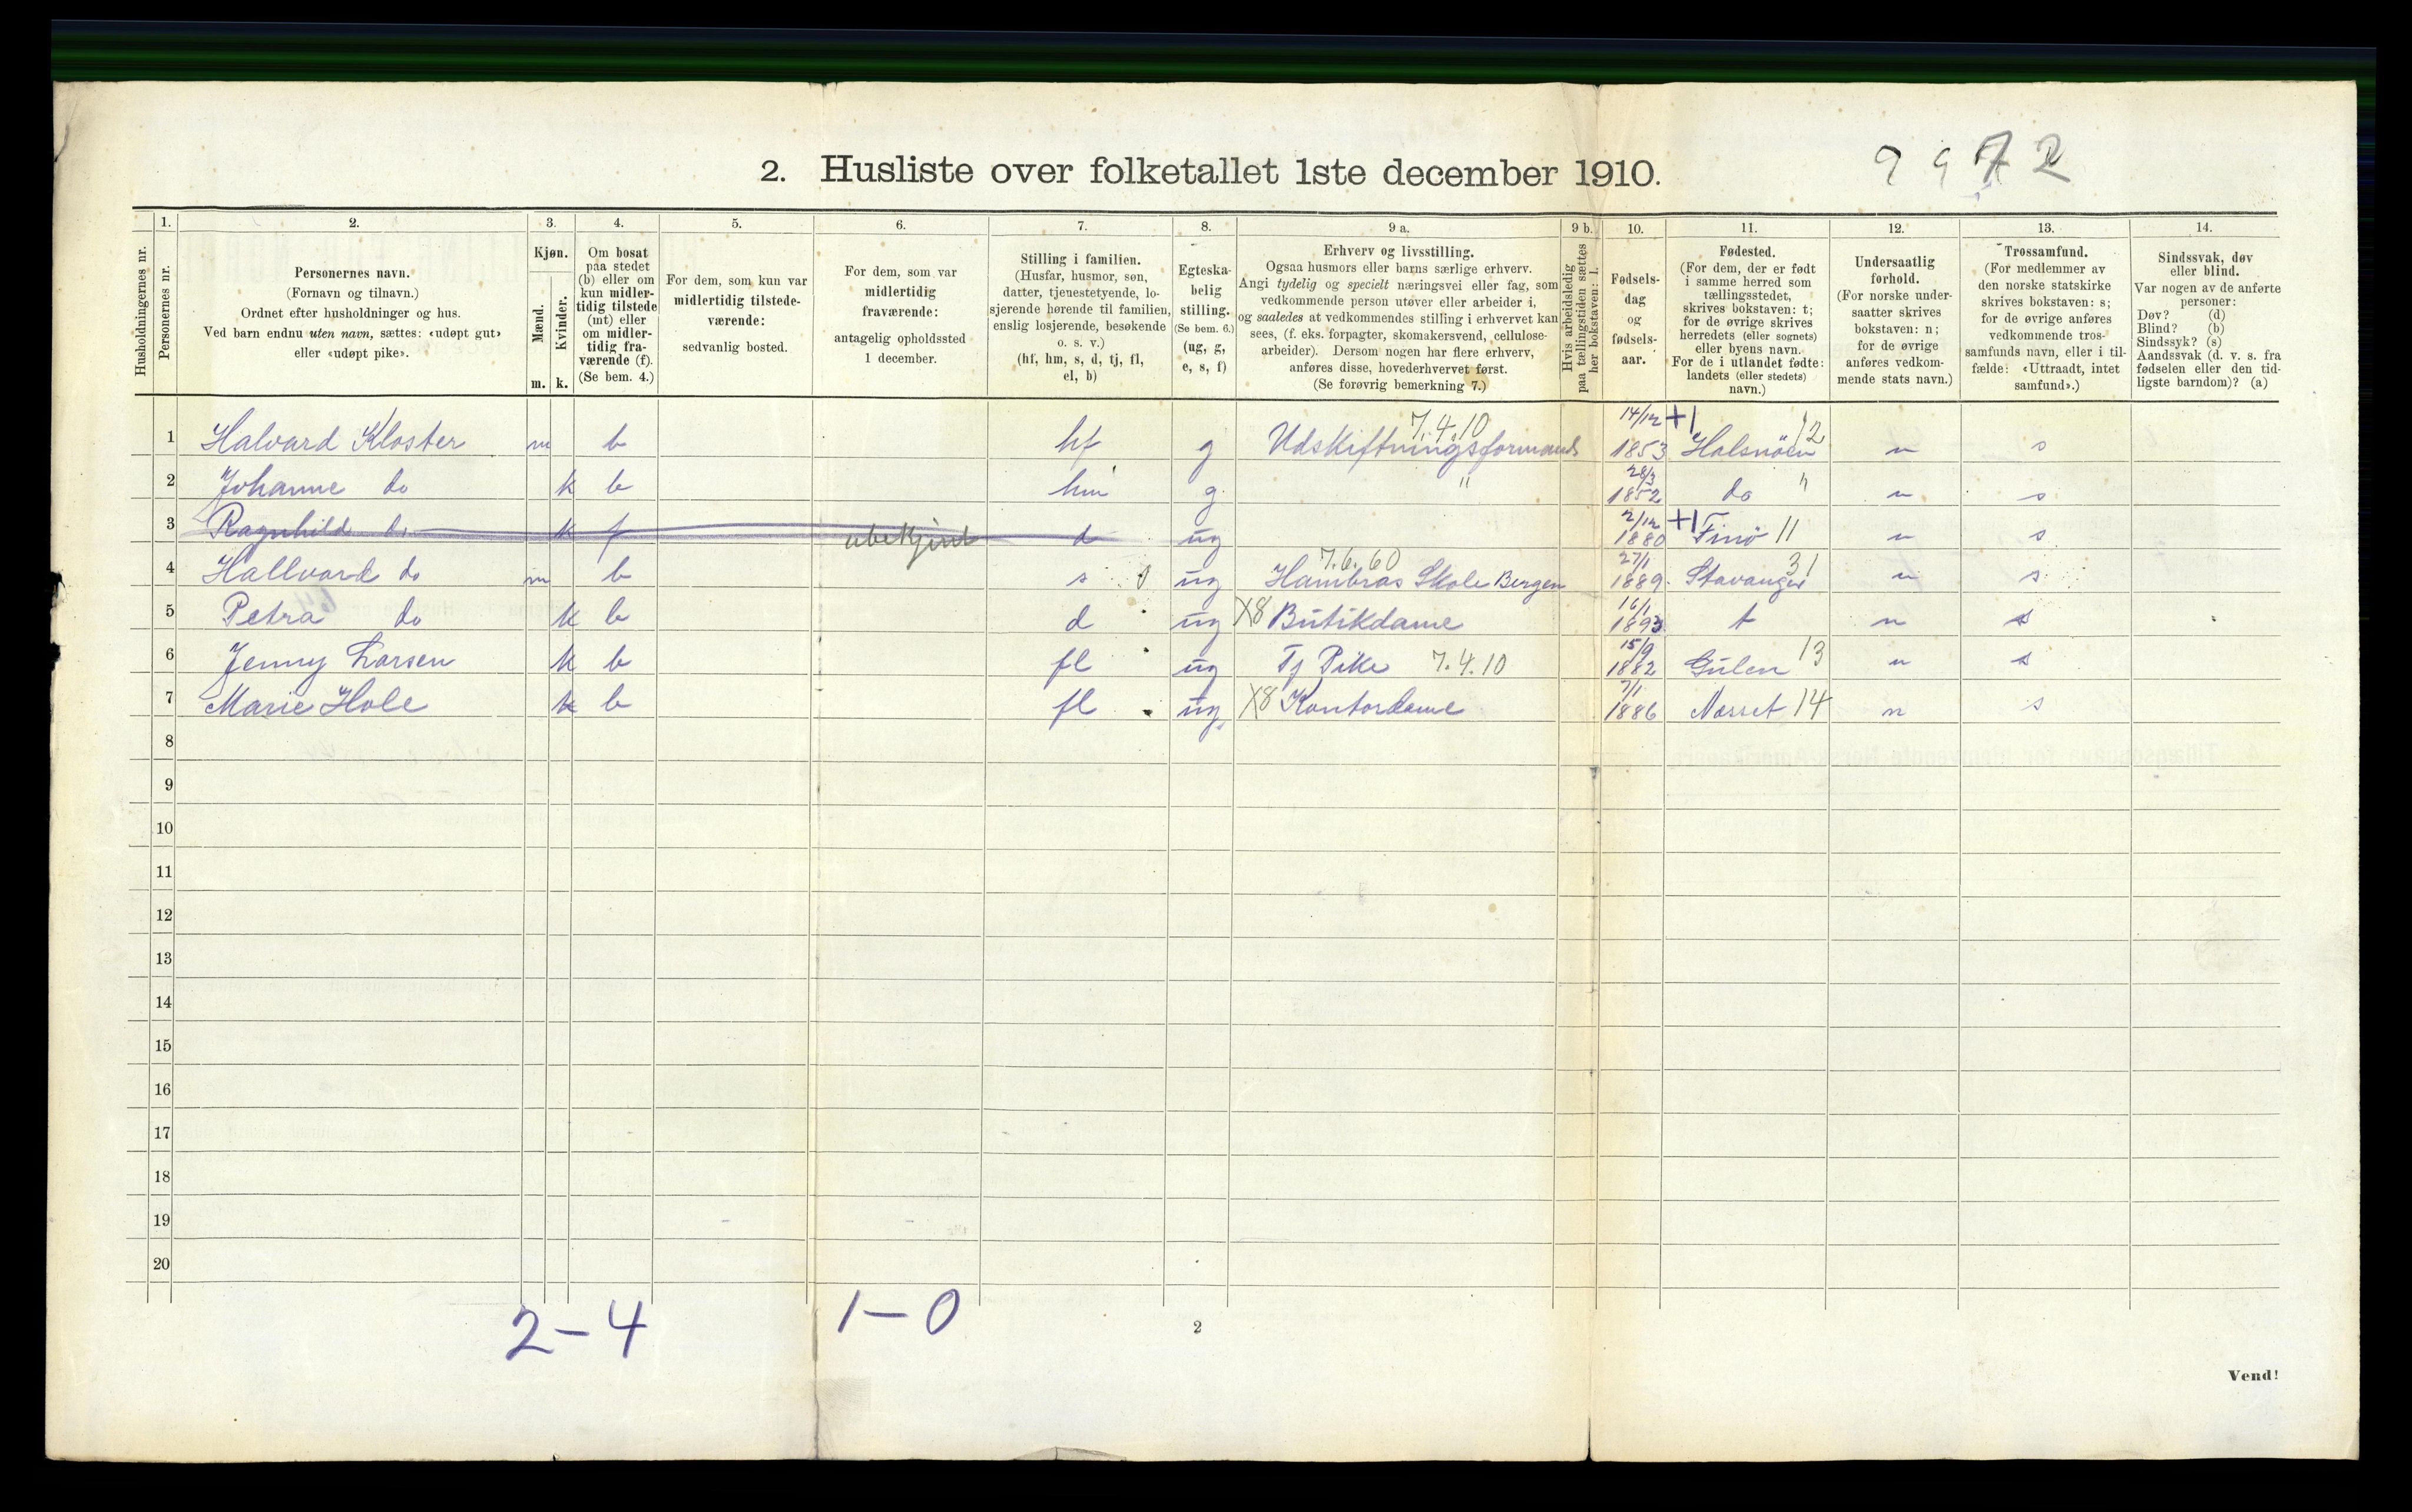 9 9 7 2
2. Husliste over folketallet 1ste december 1910.
Husholdningernes nr.
1. Personernes nr.
2. Personernes navn.
(Fornavn og tilnavn.)
Ordnet efter husholdninger og hus.
Ved barn endnu uten navn, sættes: «udøpt gut»
eller «udøpt pike».
3. Kjøn.
Mænd. m.
Kvinder. k.
4. Om bosat
paa stedet
(b) eller om
kun midler-
tidig tilstede
(mt) eller
om midler-
tidig fra-
værende (f).
(Se bem. 4.)
5. For dem, som kun var
midlertidig tilstede-
værende:
sedvanlig bosted.
6. For dem, som var
midlertidig
fraværende:
antagelig opholdssted
1 december.
7. Stilling i familien.
(Husfar, husmor, søn,
datter, tjenestetyende, lo-
sjerende hørende til familien,
enslig losjerende, besøkende
o. s. v.)
(hf, hm, s, d, tj, fl,
el, b)
8. Egteska-
belig
stilling.
(Se bem. 6.)
(ug, g,
e, s, f)
9 a. Erhverv og livsstilling.
Ogsaa husmors eller barns særlige erhverv.
Angi tydelig og specielt næringsvei eller fag, som
vedkommende person utøver eller arbeider i,
og saaledes at vedkommendes stilling i erhvervet kan
sees, (f. eks. forpagter, skomakersvend, cellulose-
arbeider). Dersom nogen har flere erhverv,
anføres disse, hovederhvervet først.
(Se forøvrig bemerkning 7.)
9 b. Hvis arbeidsledig
paa tællingstiden sættes
her bokstaven: l.
10. Fødsels-
dag
og
fødsels-
aar.
11. Fødested.
(For dem, der er født
i samme herred som
tællingsstedet,
skrives bokstaven: t;
for de øvrige skrives
herredets (eller sognets)
eller byens navn.
For de i utlandet fødte:
landets (eller stedets)
navn.)
12. Undersaatlig
forhold.
(For norske under-
saatter skrives
bokstaven: n;
for de øvrige
anføres vedkom-
mende stats navn.)
13. Trossamfund.
(For medlemmer av
den norske statskirke
skrives bokstaven: s;
for de øvrige anføres
vedkommende tros-
samfunds navn, eller i til-
fælde: «Uttraadt, intet
samfund».)
14. Sindssvak, døv
eller blind.
Var nogen av de anførte
personer:
Døv? (d)
Blind? (b)
Sindssyk? (s)
Aandssvak (d. v. s. fra
fødselen eller den tid-
ligste barndom)? (a)
1 Halvard Kloster m b hf g 7.4.10 Udskiftningsformand 14/12 1853 +1 Halsnöen 12 n s
2 Johanne do k b hm g " 28/3 1852 do " n s
3 Ragnhild do k f ubekjent d ug 2/12 1880 +1 Finö 11 n s
4 Hallvard do m b s 0 ug 7.6.60 Hambros Skole Bergen 27/1 1889 Stavanger 31 n s
5 Petra do k b d ug X8 Butikdame 16/1 1893 t n s
6 Jenny Larsen k b fl ug Tj Pike 7.4.10 15/9 1882 Gulen 13 n s
7 Marie Hole k b fl ug X8 Kontordame 7/1 1886 Nesset 14 n s
8
9
10
11
12
13
14
15
16
17
18
19
20
2 – 4 1 – 0
2
Vend!